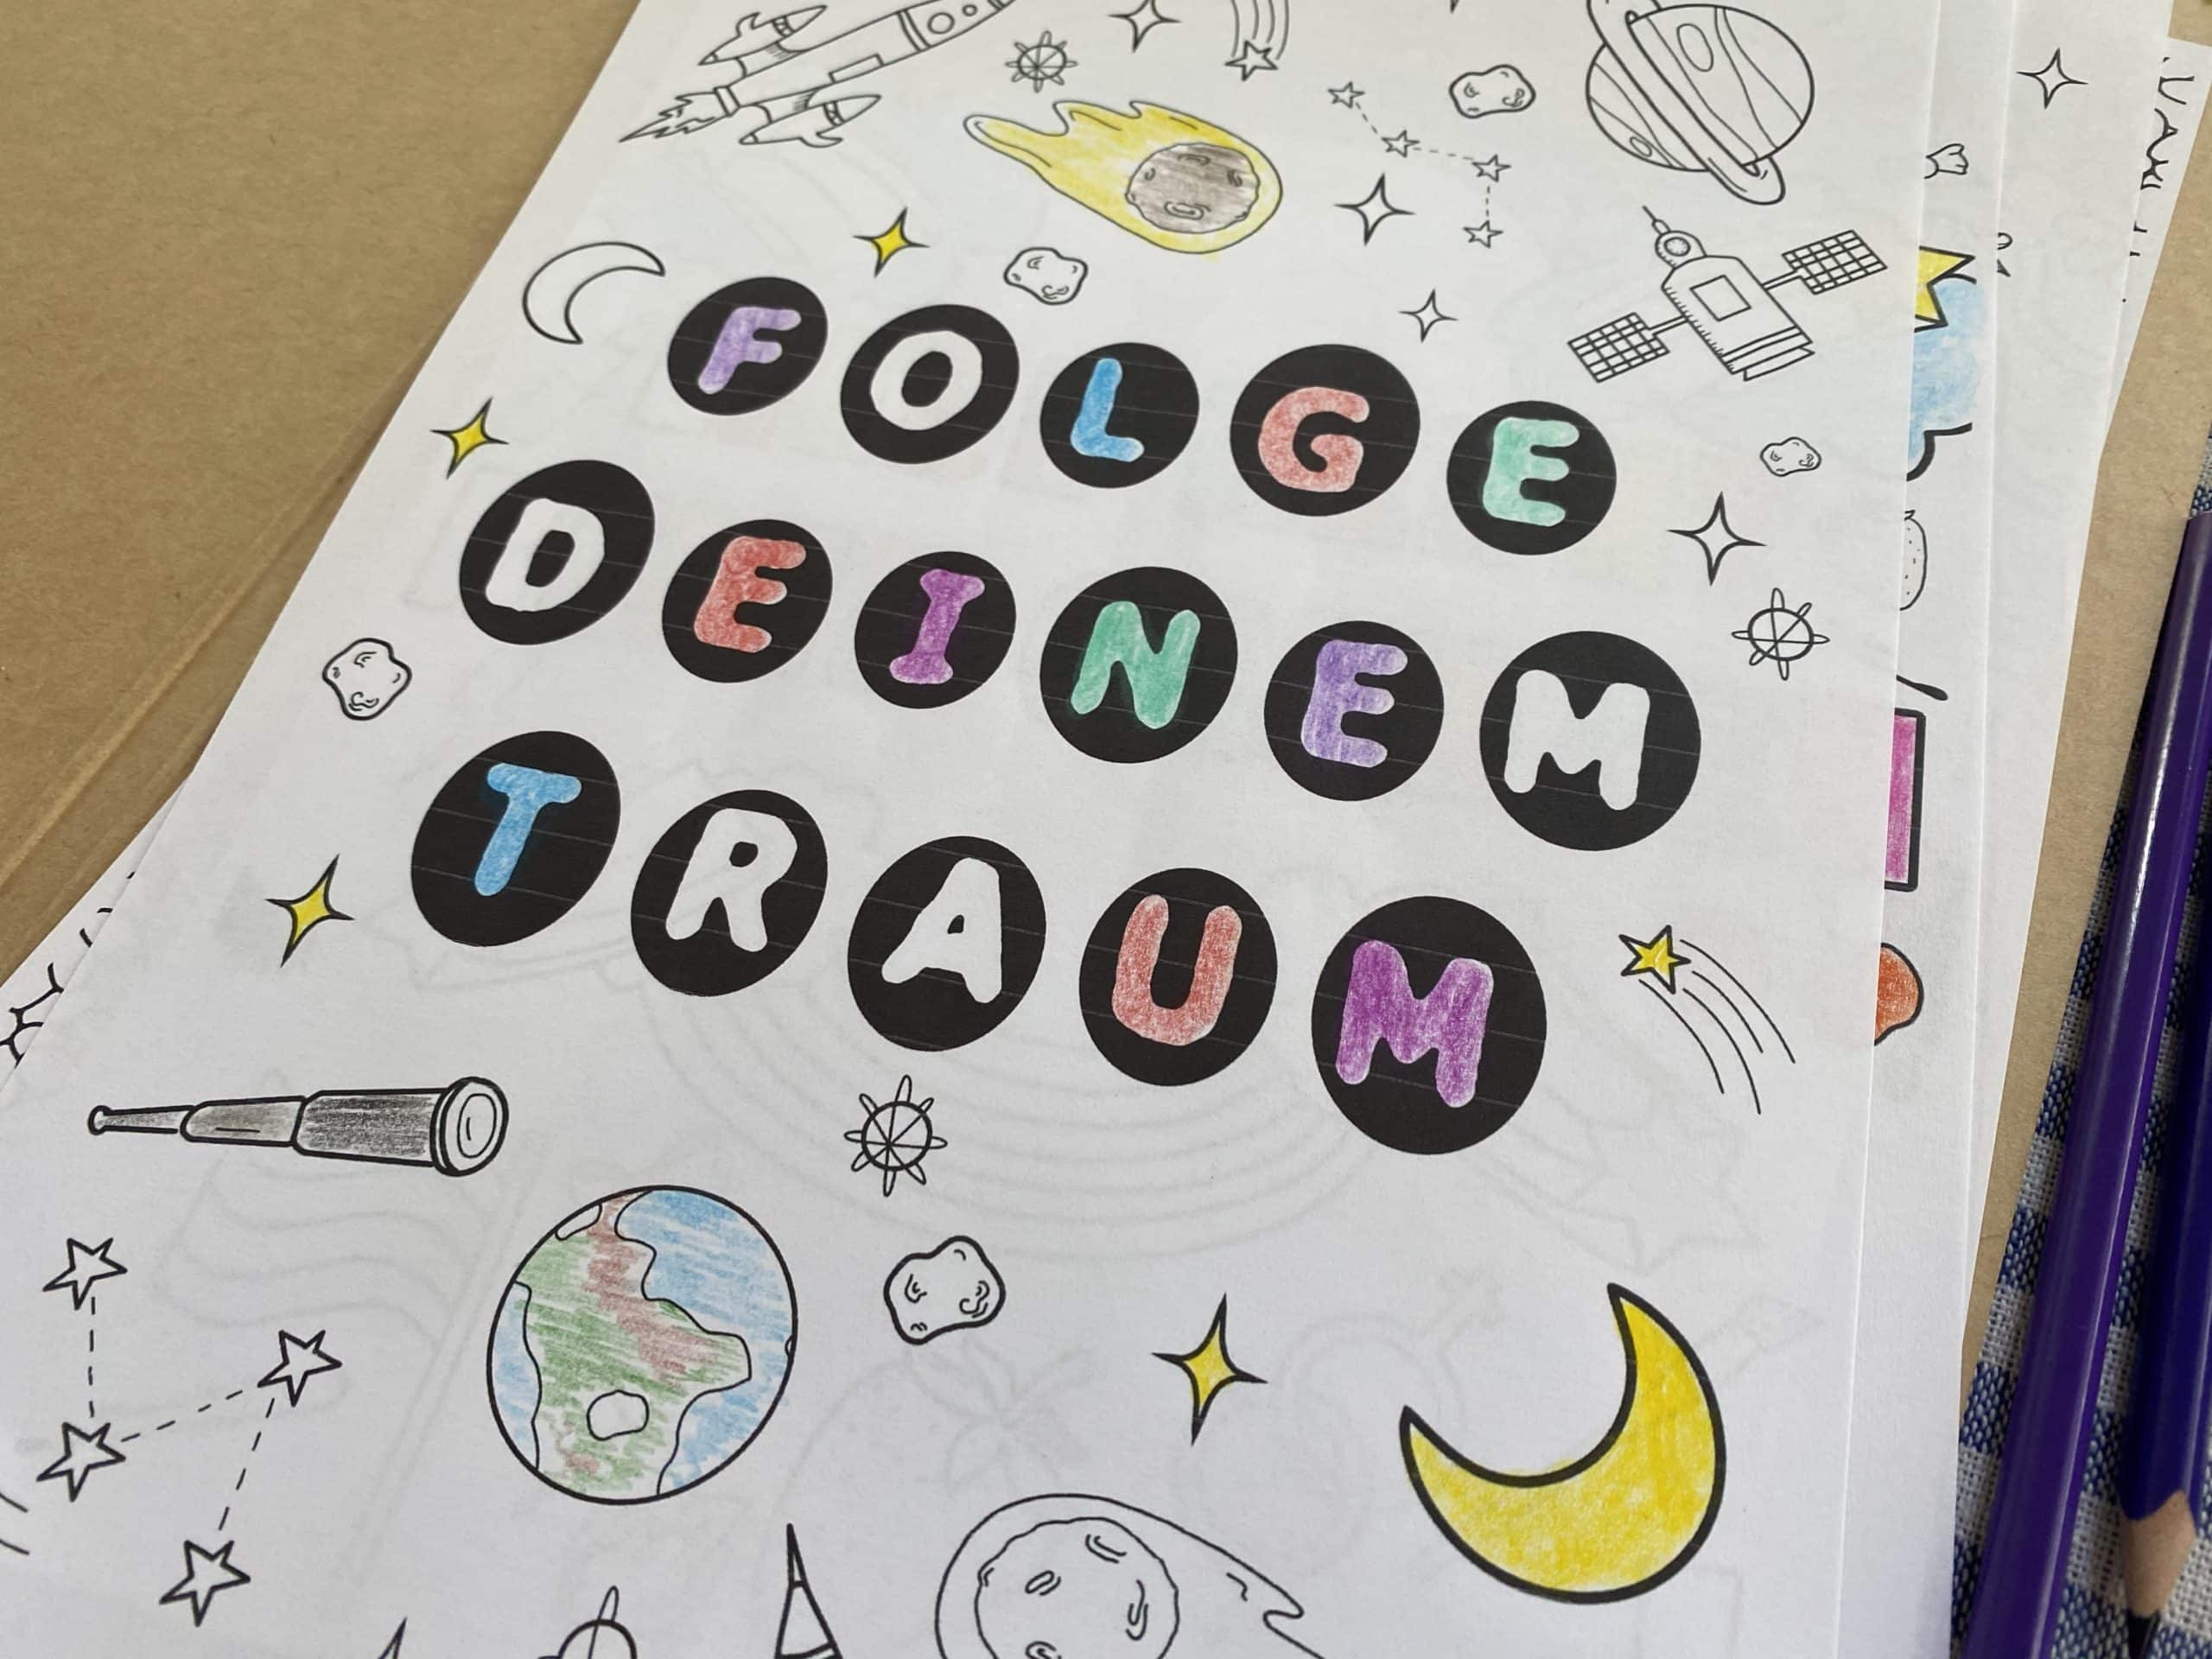 FOLGE
DEINEM
TRAUM